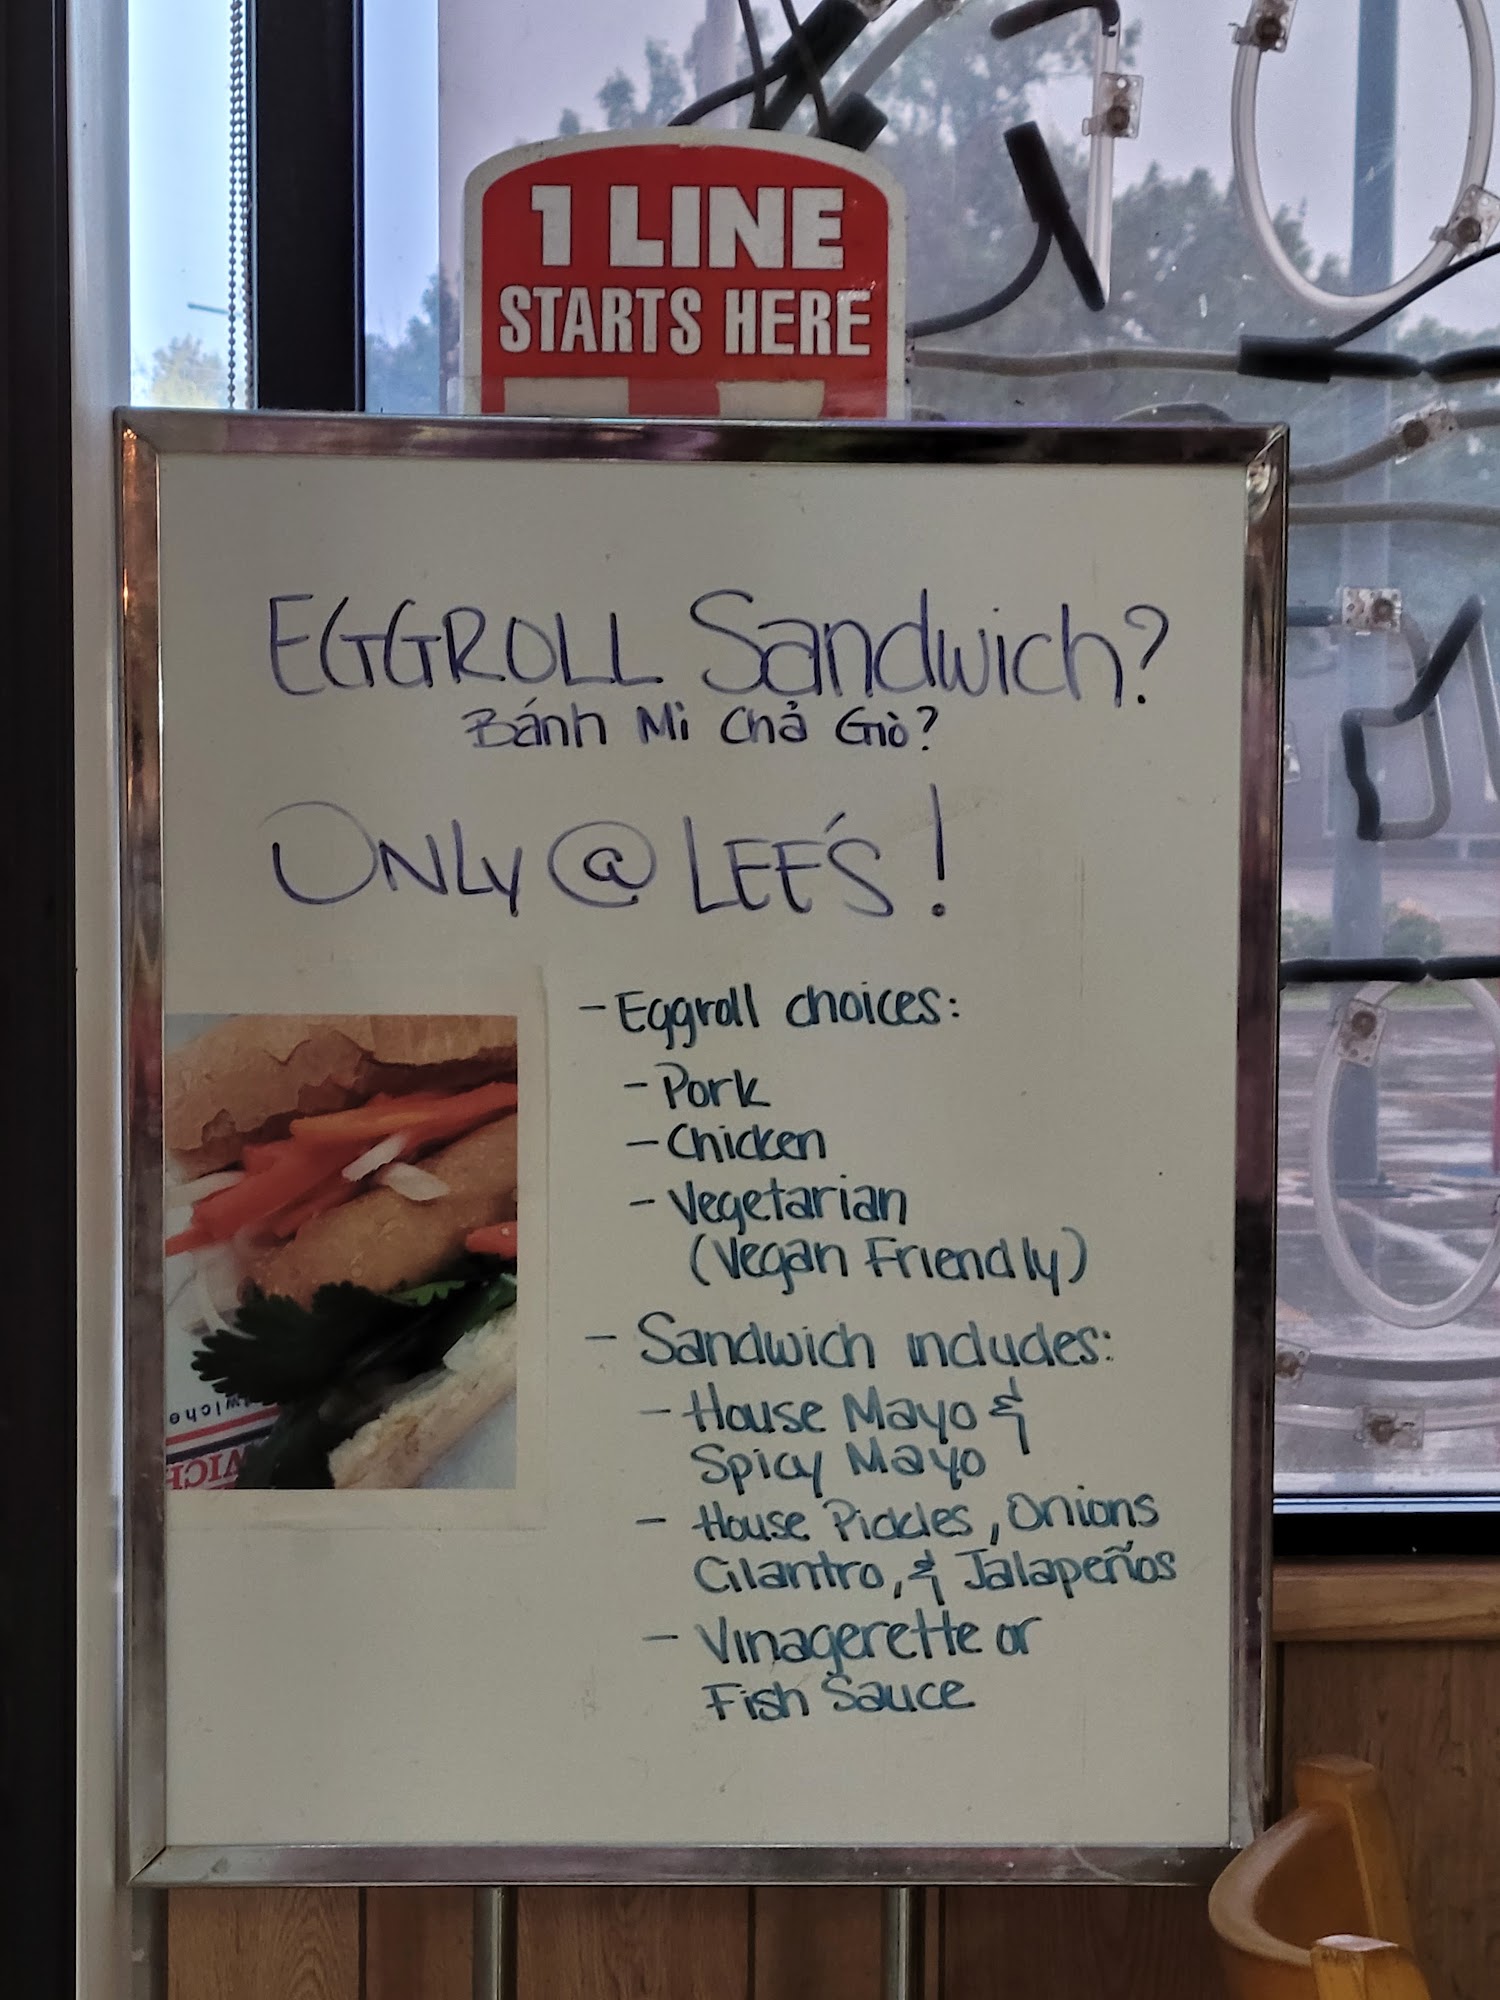 1 LINE
STARTS HERE
EGGROLL Sandwich?
Bánh Mì Chả Giò?
ONLY @ LEE'S!
- Eggroll choices:
- Pork
- Chicken
- Vegetarian
(Vegan Friendly)
- Sandwich includes:
- House Mayo &
Spicy Mayo
- House Pickles, Onions
Cilantro, & Jalapeños
- Vinagerette or
Fish Sauce